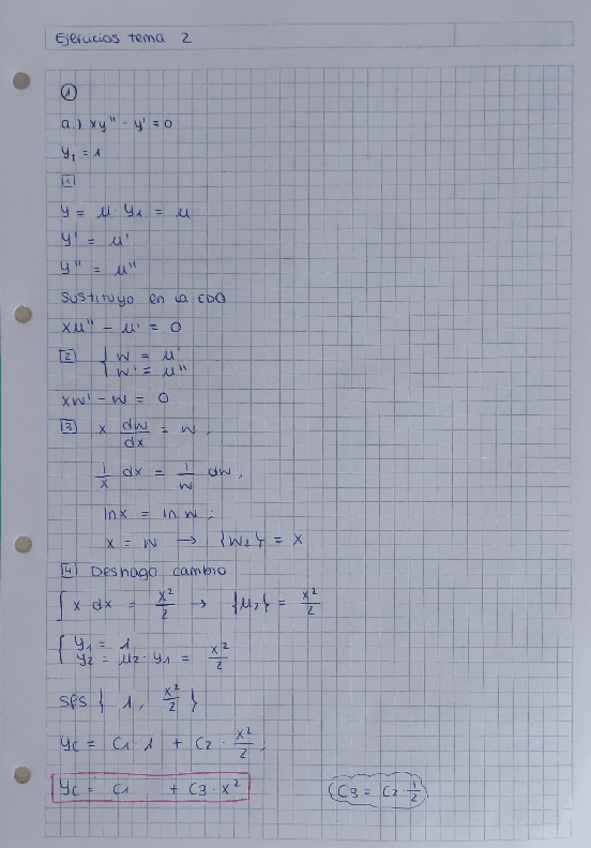 Ejercicios tema 2
①
a.) xy'' - y' = 0
y₁ = 1
1
y = μ · y₁ = μ
y' = μ'
y'' = μ''
Sustituyo en la EDO
xμ'' - μ' = 0
2 { w = μ'
w' = μ''
xw' - w = 0
3 x dw/dx = w ;
1/x dx = 1/w dw ;
ln x = ln w ;
x = w → {w₂} = x
4 Deshago cambio
∫ x dx = x²/2 → {μ₂} = x²/2
{ y₁ = 1
y₂ = μ₂ · y₁ = x²/2
SFS { 1, x²/2 }
yc = C₁ · 1 + C₂ · x²/2 ;
yc = C₁ + C₃ · x²
C₃ = C₂ · 1/2